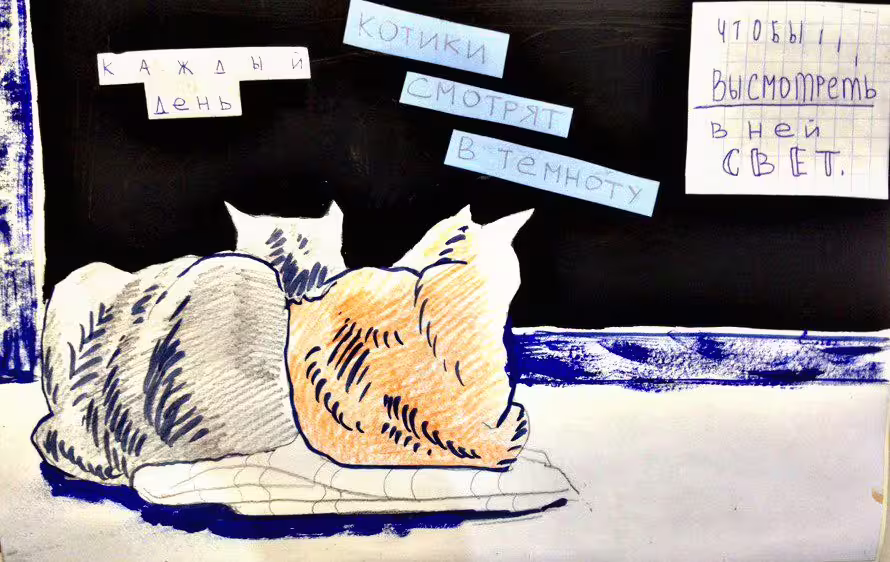 КАЖДЫЙ
ДеНЬ
КОТИКИ
СМОТРЯТ
В ТЕМНОТУ
ЧТОБЫ,,
ВЫСМОТРЕТЬ
В НЕЙ
СВЕТ.